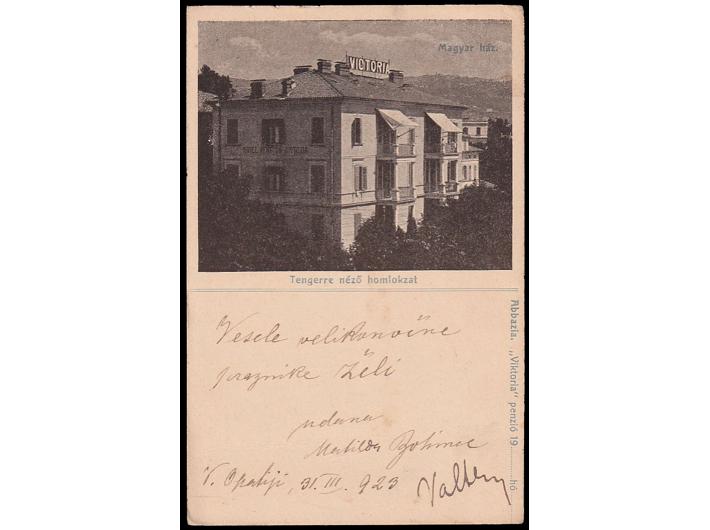 Magyar ház.
VICTORIA
Tengerre néző homlokzat
Abbazia. „Viktoria” penzió 19........hó
Vesele velikonočne
praznike želi
udana
Matilda
V. Opatiji, 31. III. 923